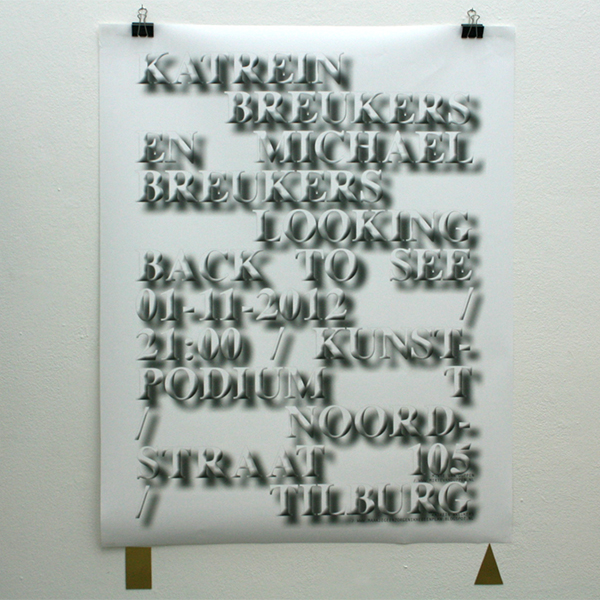 KATREIN
BREUKERS
EN MICHAEL
BREUKERS
LOOKING
BACK TO SEE
01-11-2012 /
21:00 / KUNST-
PODIUM T
/ NOORD-
STRAAT 105
/ TILBURG